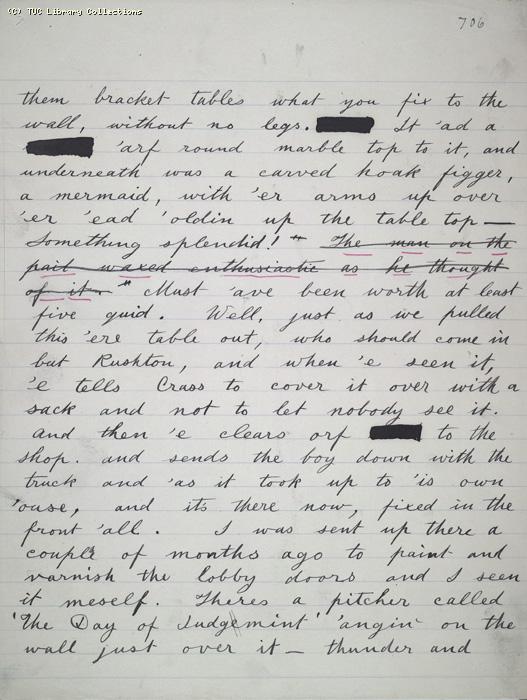 (C) TUC Library Collections
706
them bracket tables what you fix to the
wall, without no legs. It 'ad a
'arf round marble top to it, and
underneath was a carved hoak figger,
a mermaid, with 'er arms up over
'er 'ead 'oldin up the table top —
Something splendid!" The man on the
pail waxed enthusiastic as he thought
of it. " Must 'ave been worth at least
five quid. Well, just as we pulled
this 'ere table out, who should come in
but Rushton, and when 'e seen it,
'e tells Crass to cover it over with a
sack and not to let nobody see it.
and then 'e clears orf to the
shop. and sends the boy down with the
truck and 'as it took up to 'is own
'ouse, and its there now, fixed in the
front 'all. I was sent up there a
couple of months ago to paint and
varnish the lobby doors and I seen
it meself. Theres a pitcher called
'The Day of Judgemint' 'angin on the
wall just over it — thunder and